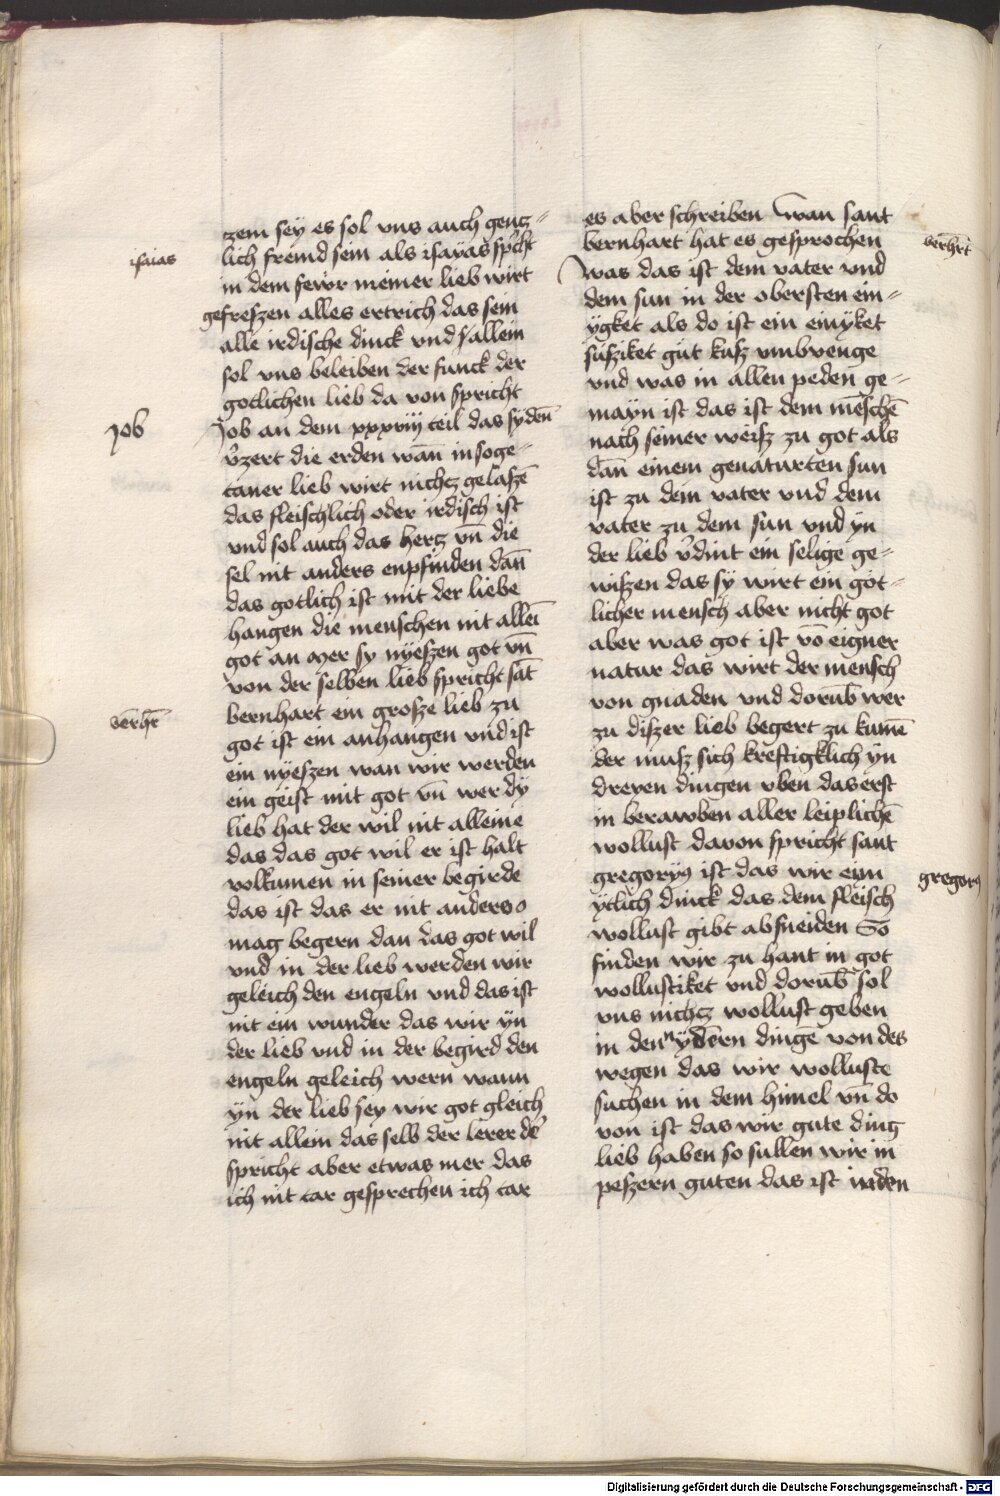 zem sey es sol vns auch gentz=
lich fremd sein als isayas spricht
in dem fewr meiner lieb wirt
gefreszen alles ertrich das sein
alle irdische dinck vnd sallein
sol vns beleiben der funck der
gotlichen lieb da von spricht
Job an dem xxxviij teil das syden̄
v̄zert die erden wan̄ in soge=
taner lieb wirt nichcz gelaszē
das fleischlich oder irdisch ist
vnd sol auch das hercz vn̄ die
sel nit anders enpfinden dan̄
das gotlich ist mit der liebe
hangen die menschen nit alleī
got an mer sy nyeszen got vn̄
von der selben lieb spricht sāt
bernhart ein grosze lieb zu
got ist ein anhangen vnd ist
ein nyeszen wan wir werden
ein geist mit got vn̄ wer dy
lieb hat der wil nit alleine
das das got wil er ist halt
volkumen in seiner begirde
das ist das er nit anders
mag begern dan das got wil
vnd in der lieb werden wir
geleich den engeln vnd das ist
nit ein wunder das wir yn
der lieb vnd in der begird den
engeln geleich wern wann
yn der lieb sey wir got gleich
nit allein das selb der lerer
spricht aber etwas mer das
ich nit tar gesprechen ich tar
isaias
Job
bērhr̄
es aber schreiben wan sant
bernhart hat es gesprochen
was das ist dem vater vnd
dem sun in der obersten ein=
ygket als do ist ein einyket
susziket gut kusz vmbvenge
vnd was in allen peden ge=
mayn ist das ist dem mēschē
nach seiner weisz zu got als
dan̄ einem genaturten sun
ist zu dem vater vnd dem
vater zu dem sun vnd yn
der lieb v̄dint ein selige ge=
wiszen das sy wirt ein got=
licher mensch aber nicht got
aber was got ist vō eigner
natur das wirt der mensch
von gnaden vnd dorūb wer
zu diszer lieb begert zu kumē
der musz sich kreftigklich yn
dreyen dingen vben das erst
in berawben aller leiplichē
wollust davon spricht sant
gregoryꝰ ist das wir eim
ytlich dinck das dem fleisch
wollust gibt absneiden So
finden wir zu hant in got
wollustiket vnd dorūb sol
vns nichcz wollust geben
in den nydern dingē von des
wegen das wir wolluste
suchen in dem himel vn̄ do
von ist das wir gute ding
lieb haben so sullen wir in
peszern guten das ist in den
bērhrt
gregorꝰ
Digitalisierung gefördert durch die Deutsche Forschungsgemeinschaft - DFG